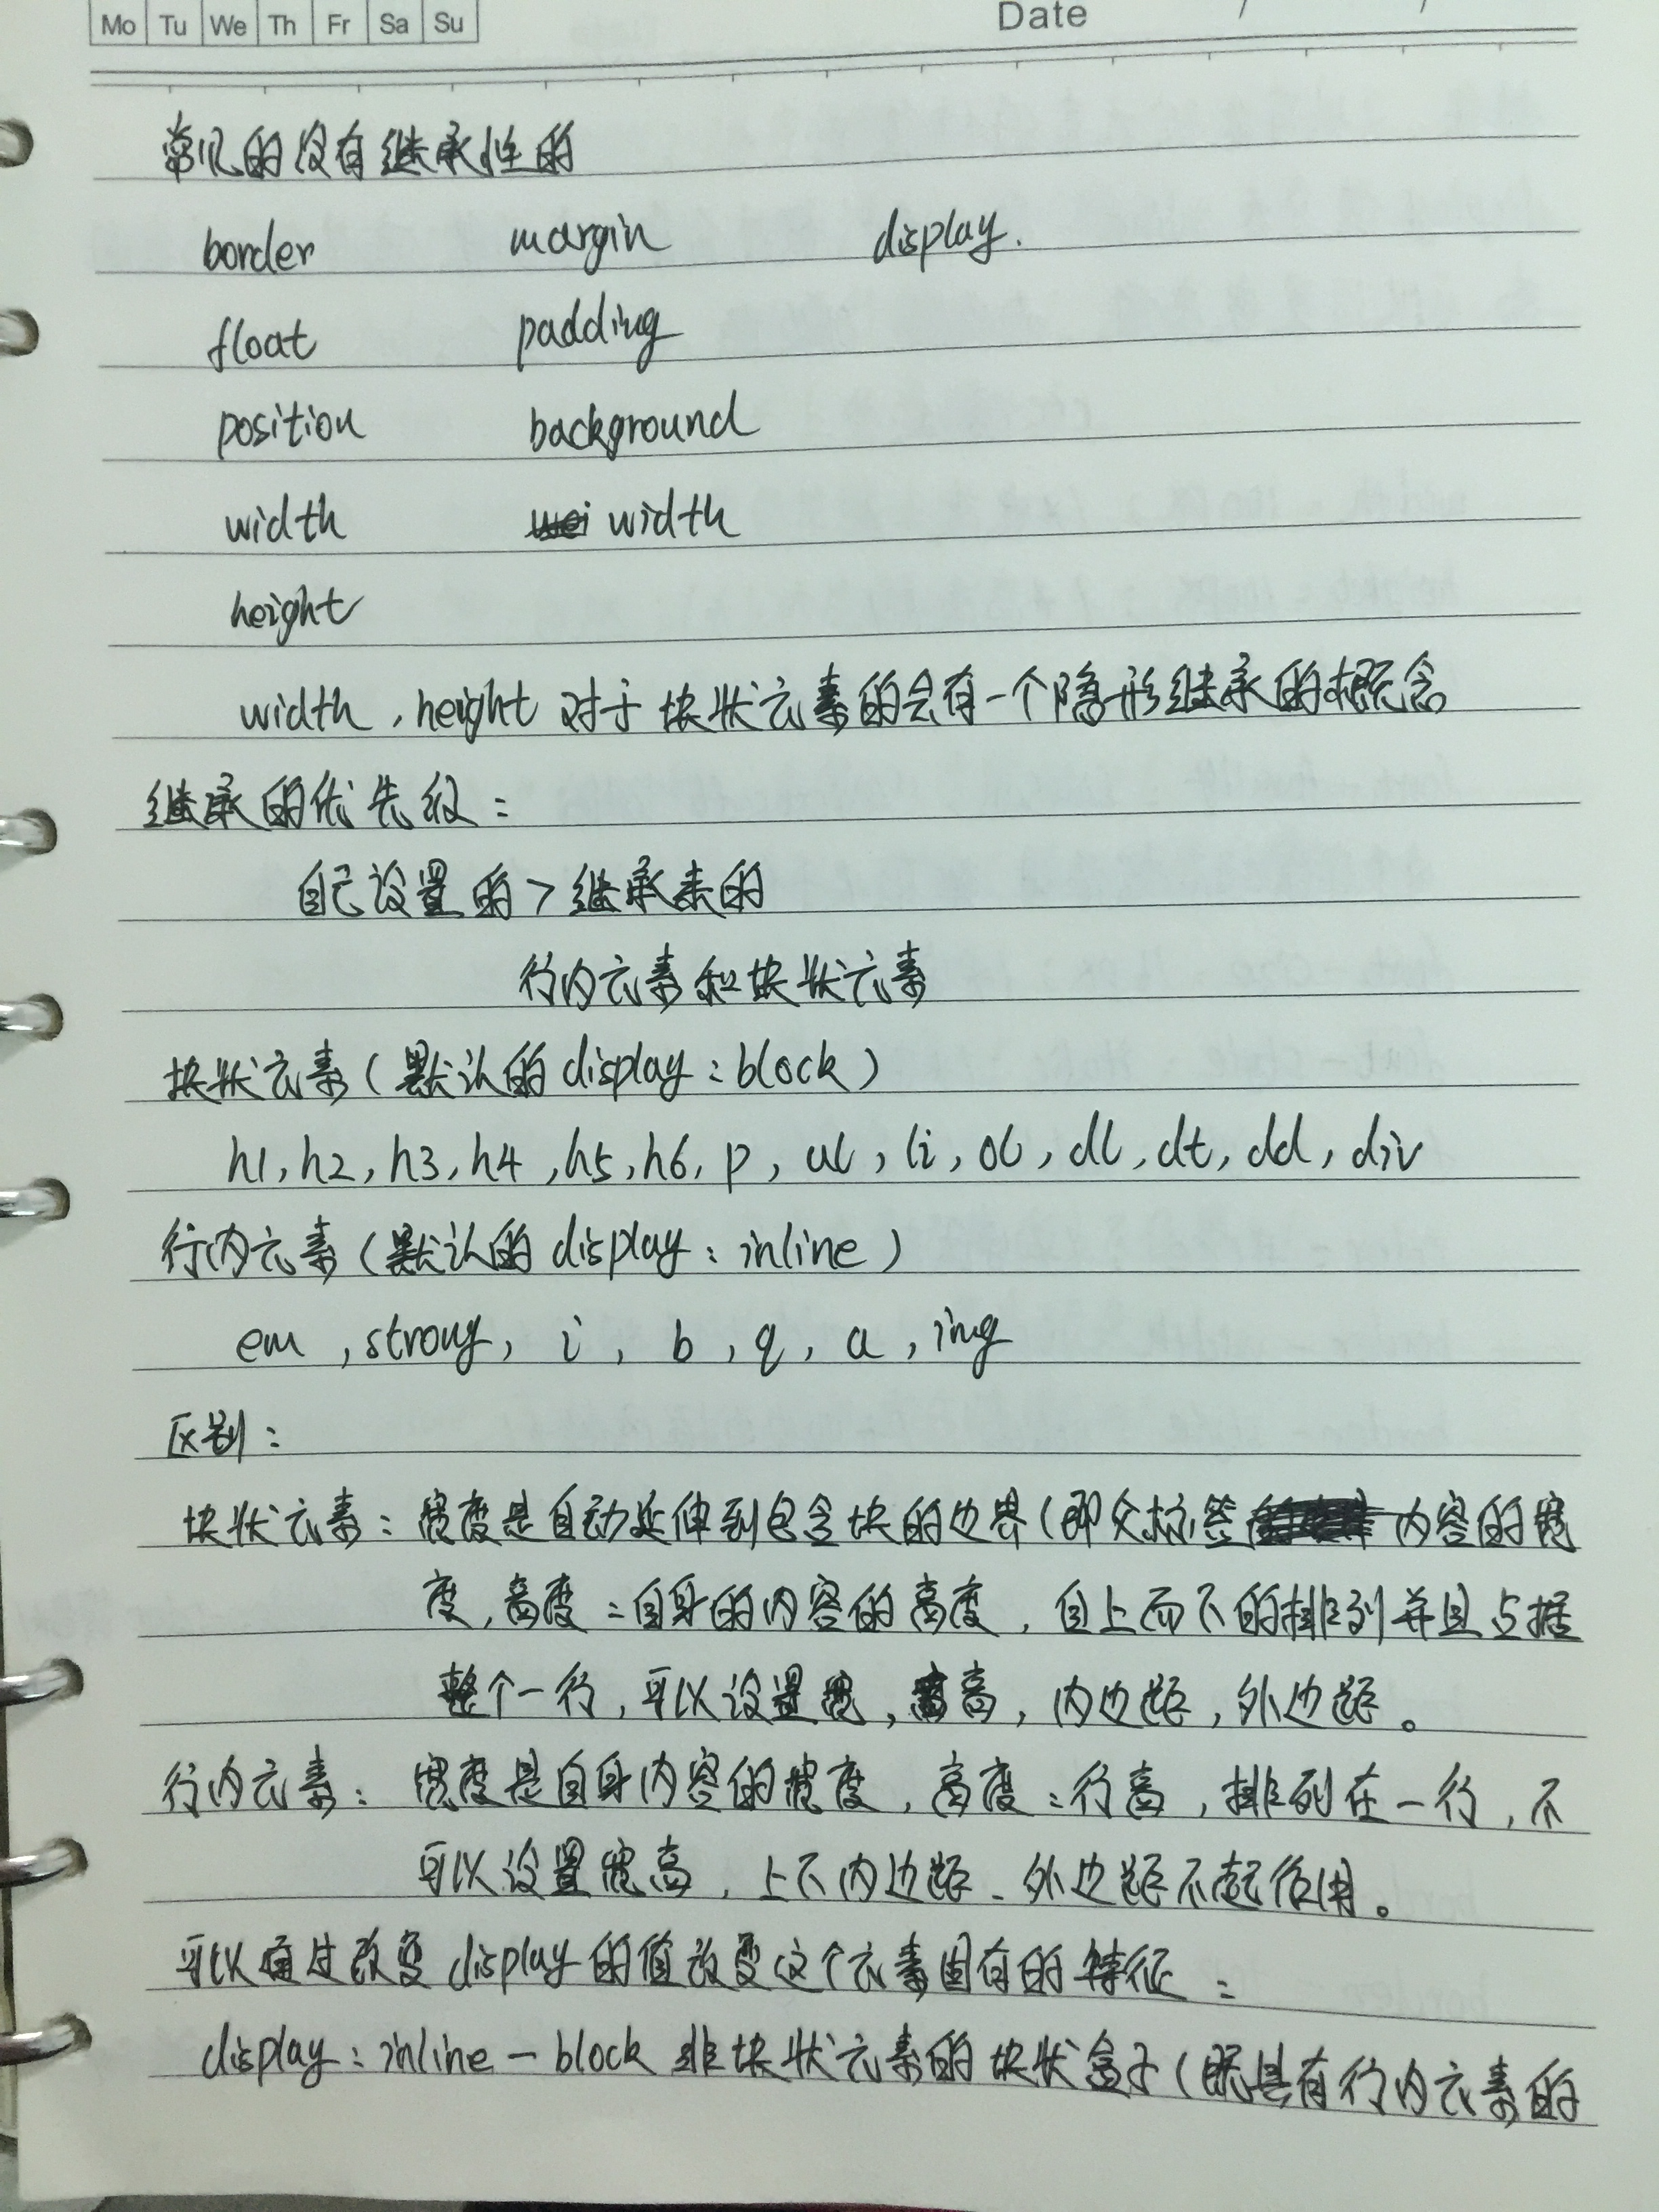 Mo Tu We Th Fr Sa Su Date / /
常见的没有继承性的
border margin display.
float padding
position background
width width
height
width,height 对于块状元素的会有一个隐形继承的概念
继承的优先级:
自己设置的>继承来的
行内元素和块状元素
块状元素(默认的display:block)
h1,h2,h3,h4,h5,h6,p,ul,li,ol,dl,dt,dd,div
行内元素(默认的display:inline)
em,strong,i,b,q,a,img
区别:
块状元素:宽度是自动延伸到包含块的边界(即父标签内容的宽
度,高度=自身的内容的高度,自上而下的排列并且占据
整个一行,可以设置宽,高,内边距,外边距。
行内元素:宽度是自身内容的宽度,高度=行高,排列在一行,不
可以设置宽高,上下内边距、外边距不起作用。
可以通过改变display的值改变这个元素固有的特征:
display:inline-block 非块状元素的块状盒子(既具有行内元素的